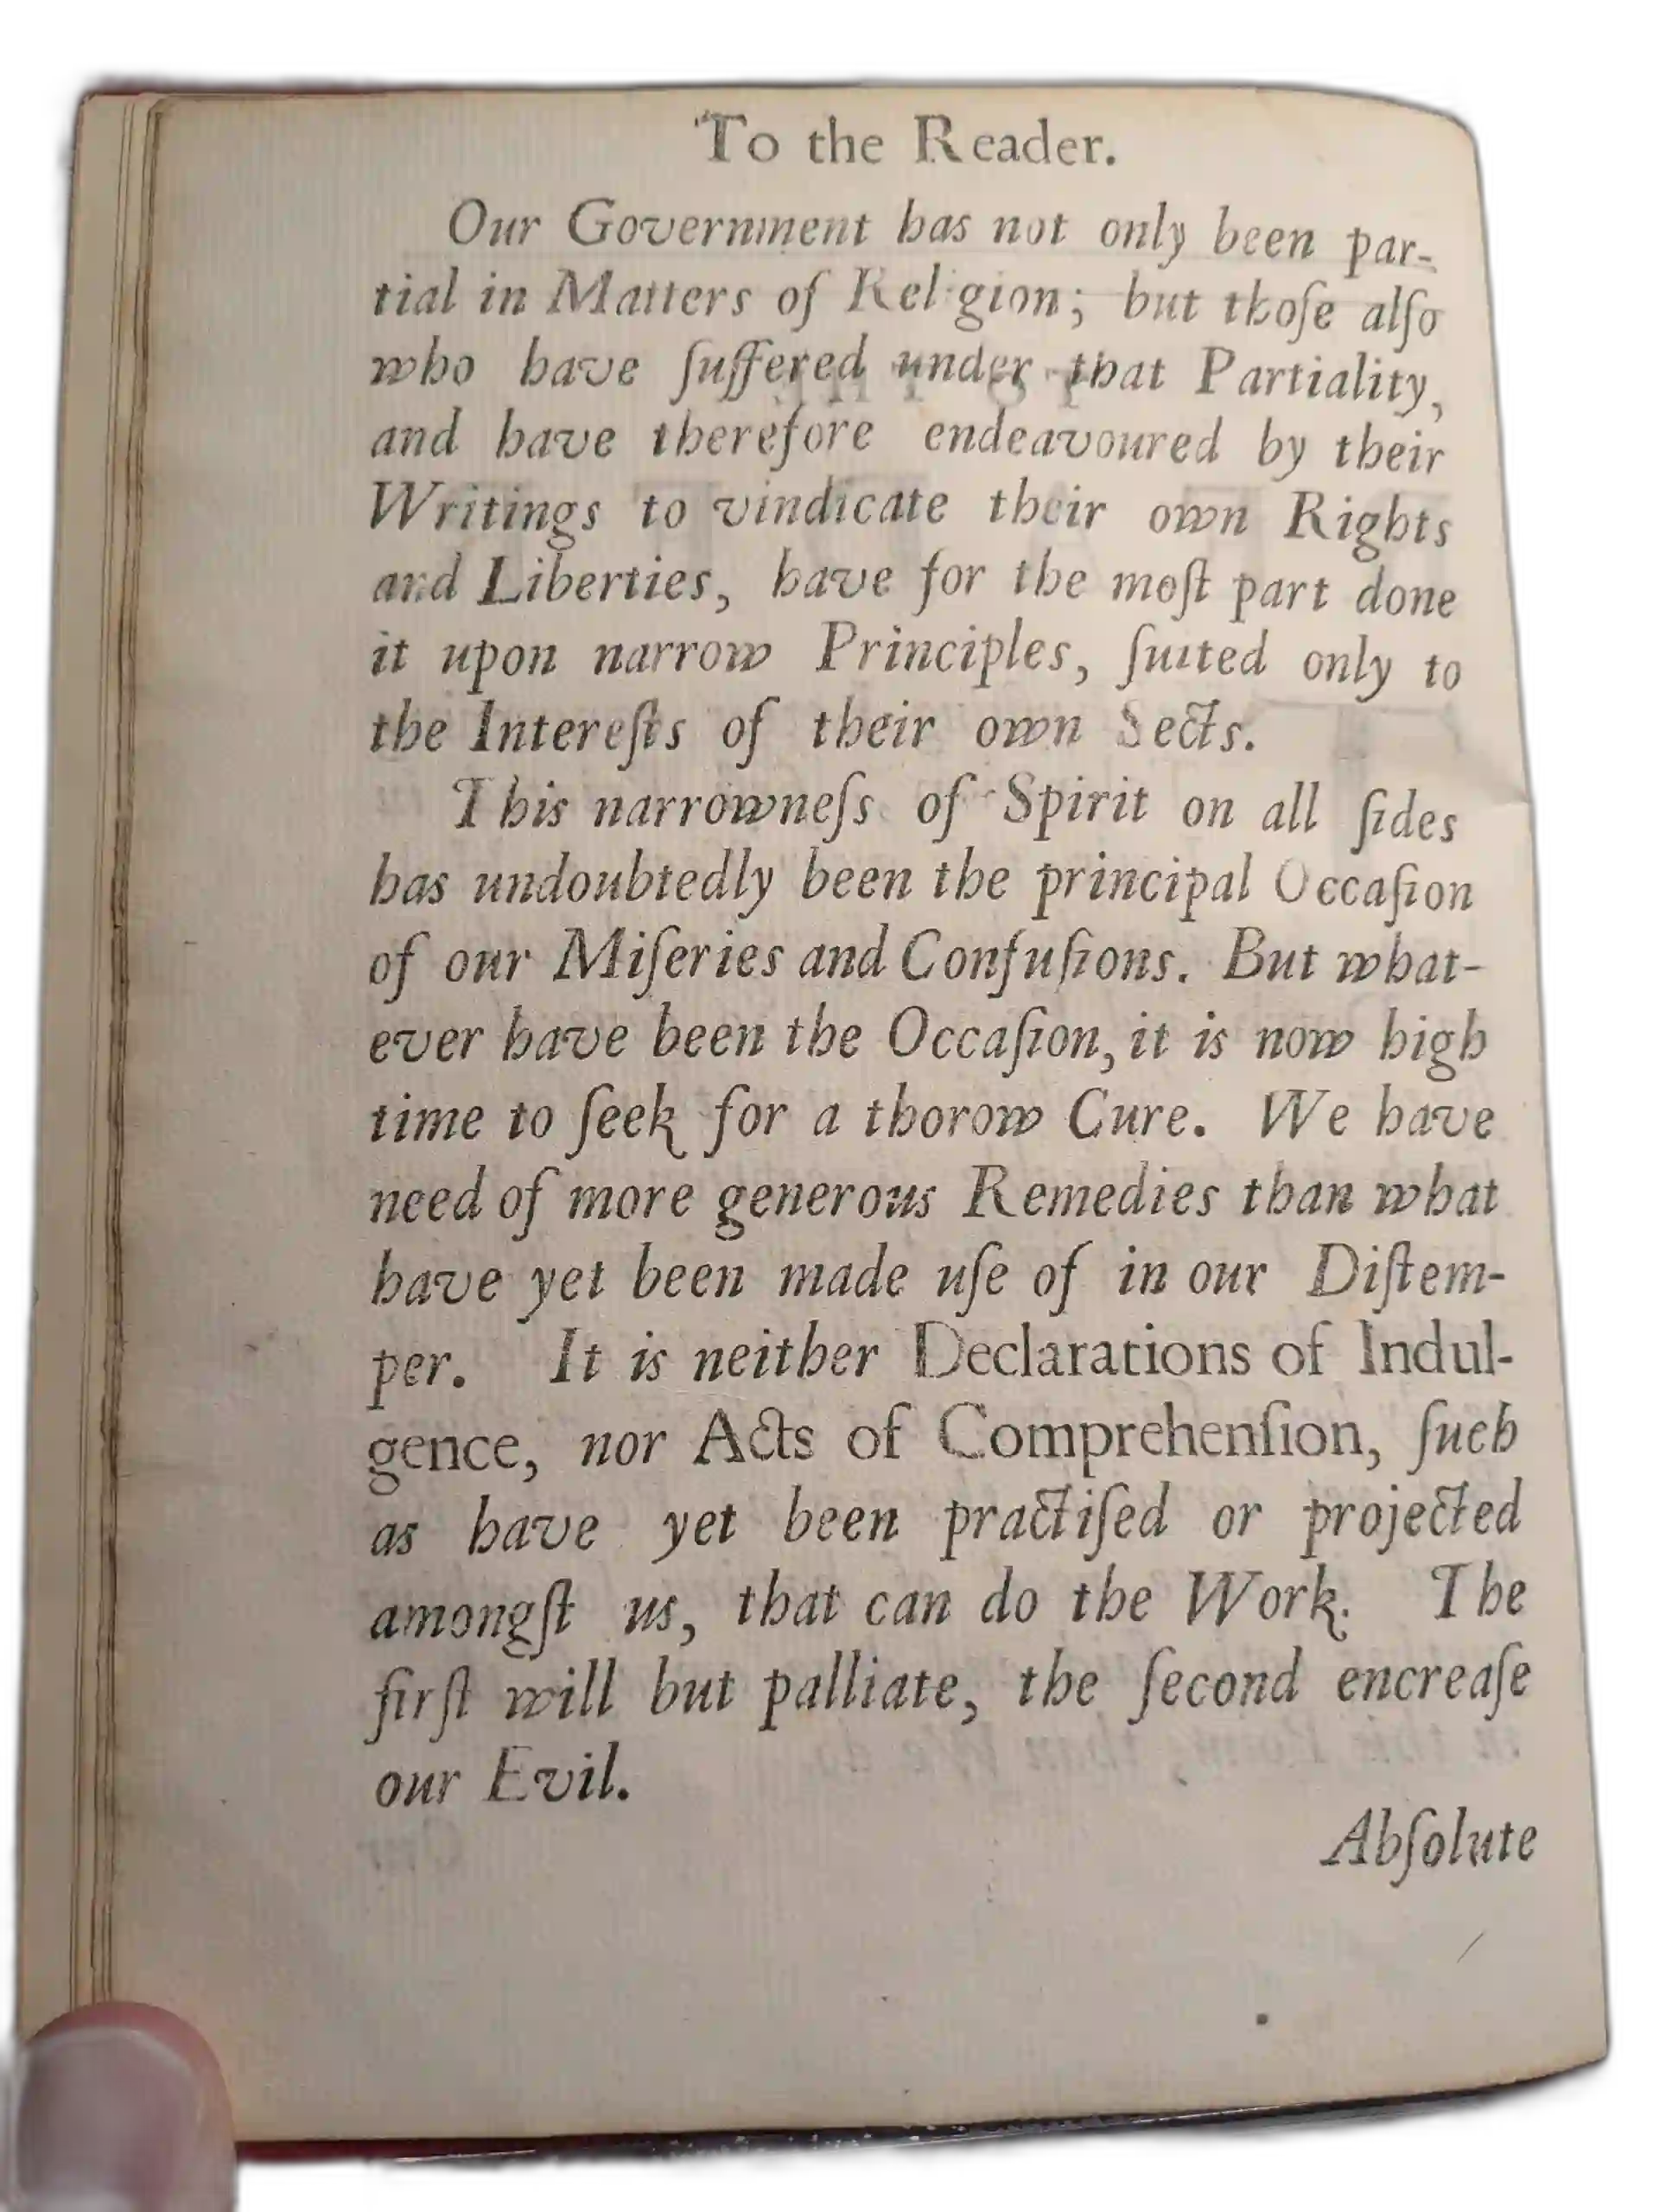 To the Reader.
Our Government has not only been par-
tial in Matters of Religion; but thoſe alſo
who have ſuffered under that Partiality,
and have therefore endeavoured by their
Writings to vindicate their own Rights
and Liberties, have for the moſt part done
it upon narrow Principles, ſuited only to
the Intereſts of their own Sects.
This narrowneſs of Spirit on all ſides
has undoubtedly been the principal Occaſion
of our Miſeries and Confuſions. But what-
ever have been the Occaſion, it is now high
time to ſeek for a thorow Cure. We have
need of more generous Remedies than what
have yet been made uſe of in our Diſtem-
per. It is neither Declarations of Indul-
gence, nor Acts of Comprehenſion, ſuch
as have yet been practiſed or projected
amongſt us, that can do the Work. The
firſt will but palliate, the ſecond encreaſe
our Evil.
Abſolute